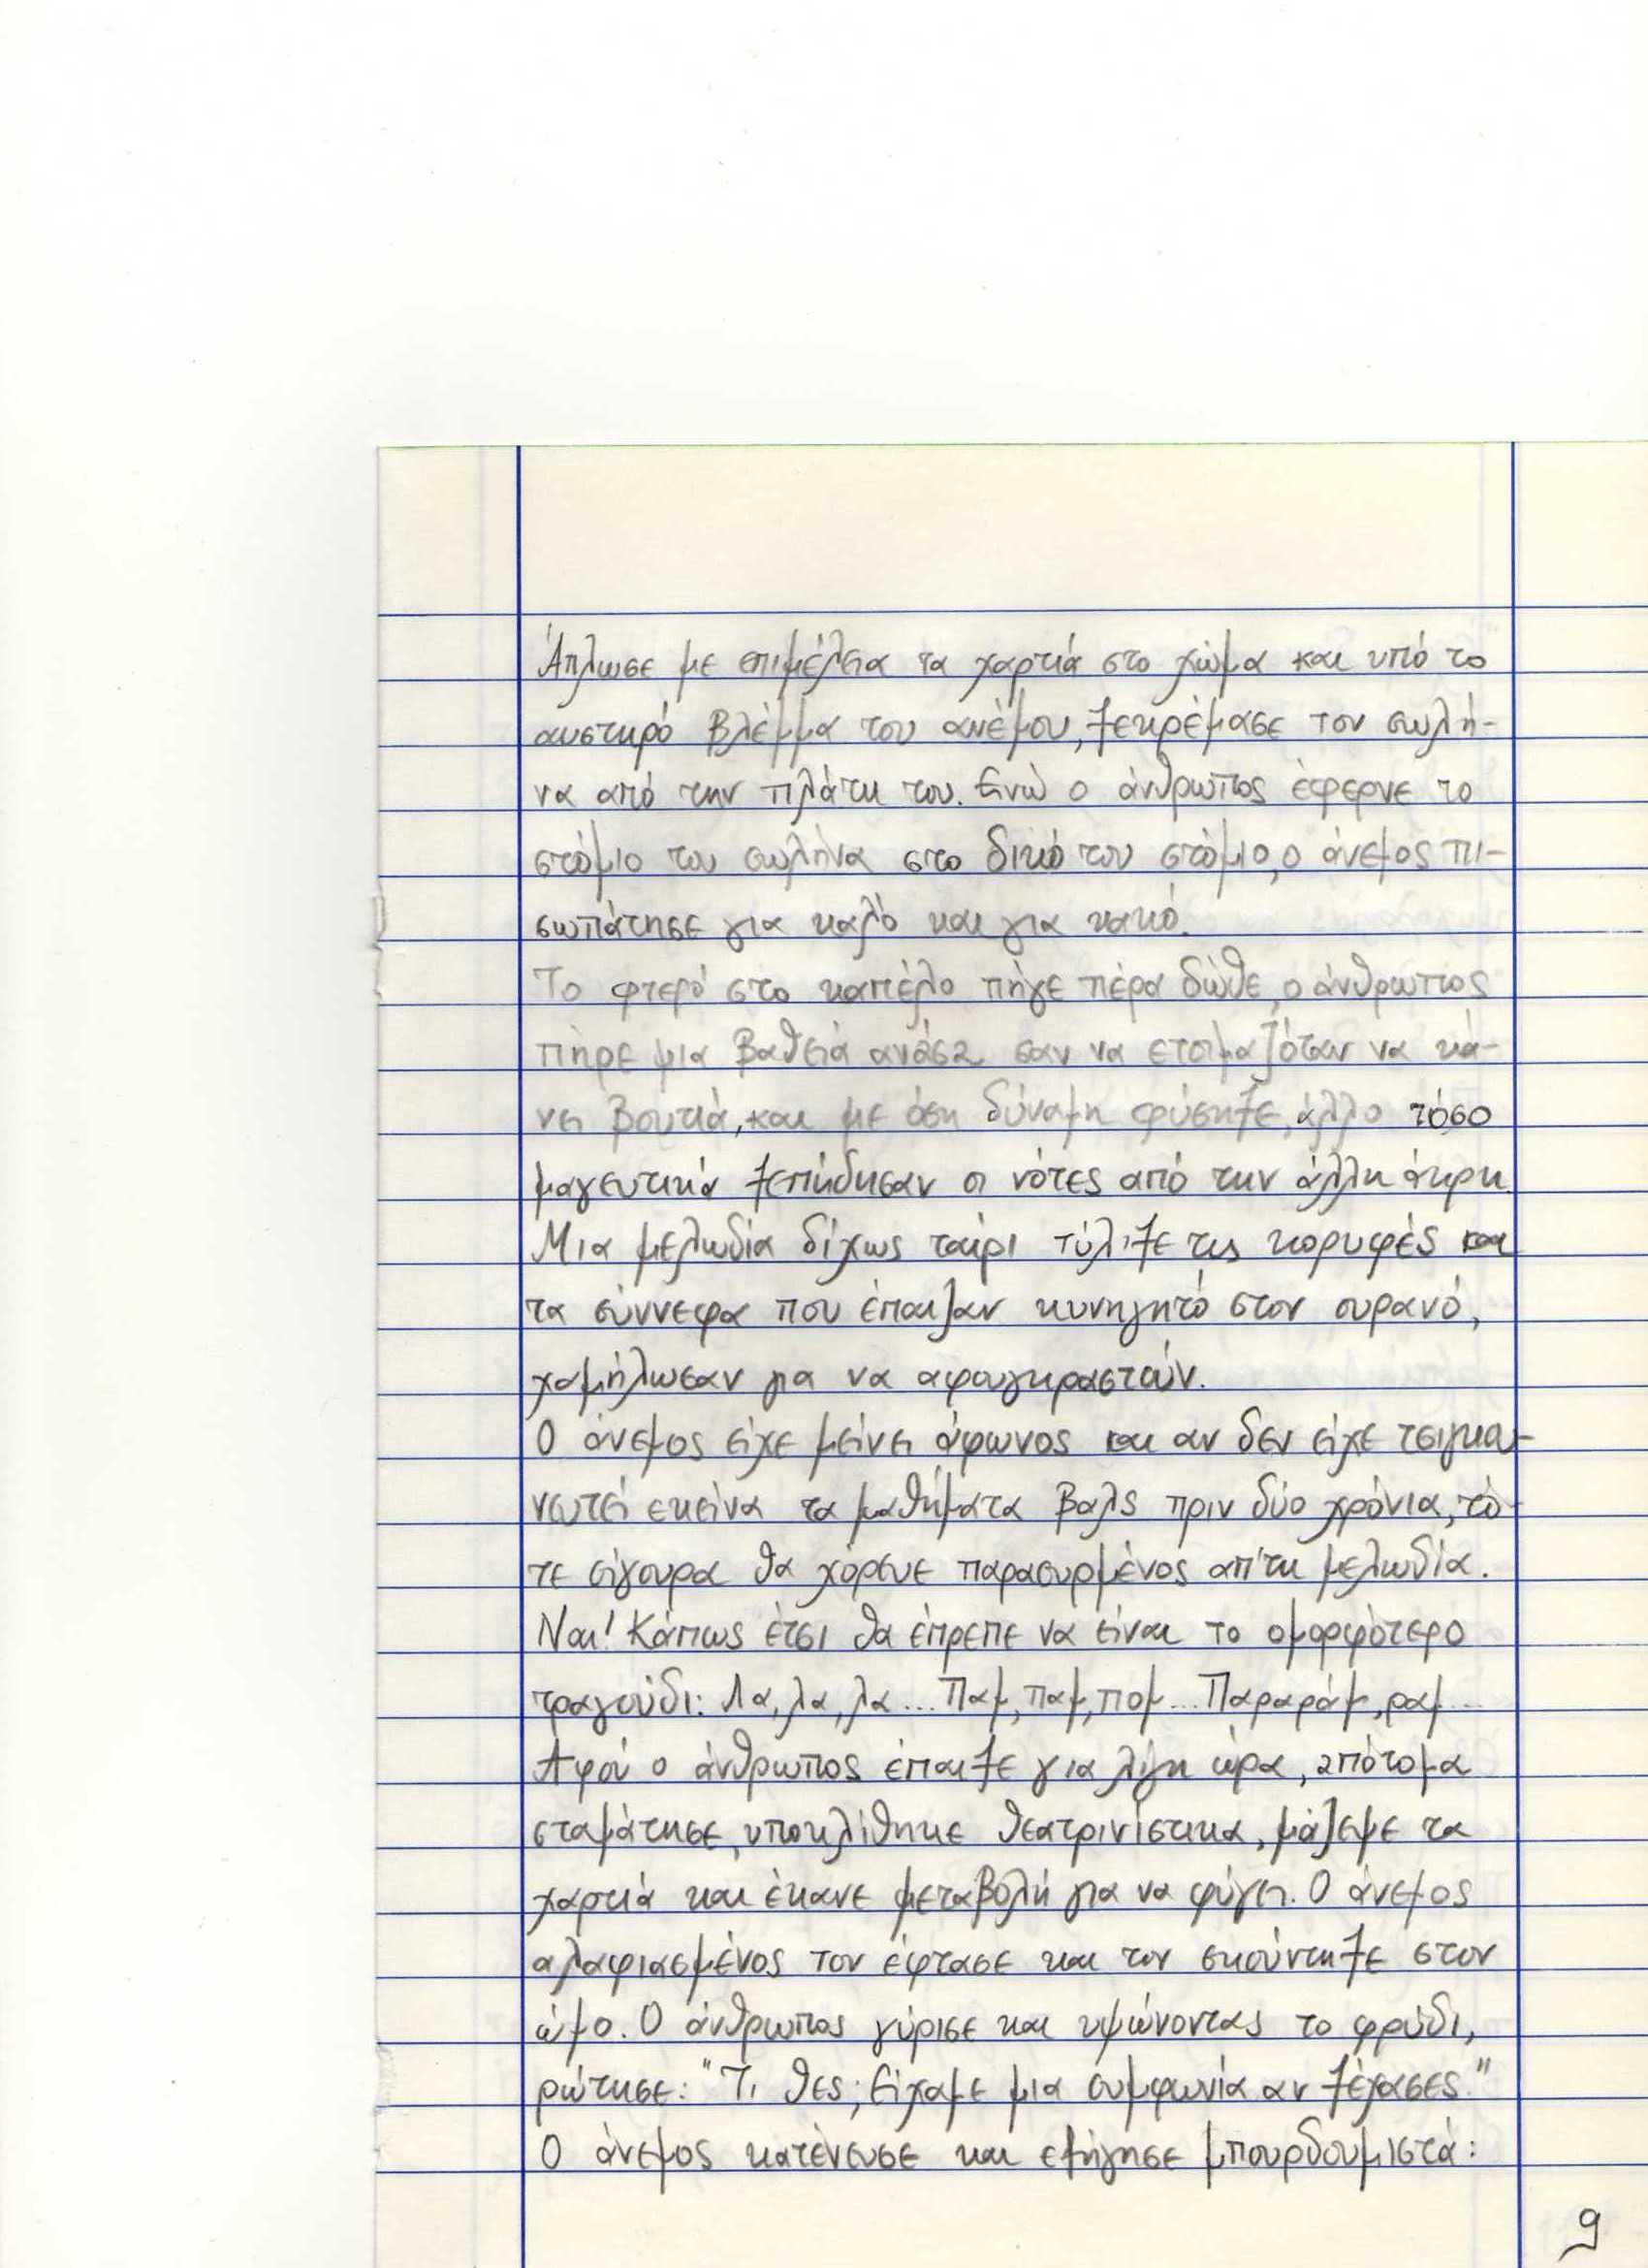 Άπλωσε με επιμέλεια τα χαρτιά στο χώμα και υπό το
αυστηρό βλέμμα του ανέμου, ξεκρέμασε τον σωλή-
να από την πλάτη του. Ενώ ο άνθρωπος έφερνε το
στόμιο του σωλήνα στο δικό του στόμιο, ο άνεμος πι-
σωπάτησε για καλό και για κακό.
Το φτερό στο καπέλο πήγε πέρα δώθε, ο άνθρωπος
πήρε μια βαθειά ανάσα σαν να ετοιμαζόταν να κά-
νει βουτιά, και με όση δύναμη φύσηξε, άλλο τόσο
μαγευτικά ξεπήδησαν οι νότες από την άλλη άκρη.
Μια μελωδία δίχως ταίρι τύλιξε τις κορυφές και
τα σύννεφα που έπαιζαν κυνηγητό στον ουρανό,
χαμήλωσαν για να αφουγκραστούν.
Ο άνεμος είχε μείνει άφωνος και αν δεν είχε τσιγκου-
νευτεί εκείνα τα μαθήματα βαλς πριν δύο χρόνια, τό-
τε σίγουρα θα χόρευε παρασυρμένος απ'τη μελωδία.
Ναι! Κάπως έτσι θα έπρεπε να είναι το ομορφότερο
τραγούδι: Λα, λα, λα... Παμ, παμ, πομ... Παραράμ, ραμ...
Αφού ο άνθρωπος έπαιξε για λίγη ώρα, απότομα
σταμάτησε, υποκλίθηκε θεατρινίστικα, μάζεψε τα
χαρτιά και έκανε μεταβολή για να φύγει. Ο άνεμος
αλαφιασμένος τον έφτασε και τον σκούντηξε στον
ώμο. Ο άνθρωπος γύρισε και υψώνοντας το φρύδι,
ρώτησε: "Τι θες; Είχαμε μια συμφωνία αν ξέχασες."
Ο άνεμος κατένευσε και εξήγησε μπουρδουμιστά:
9